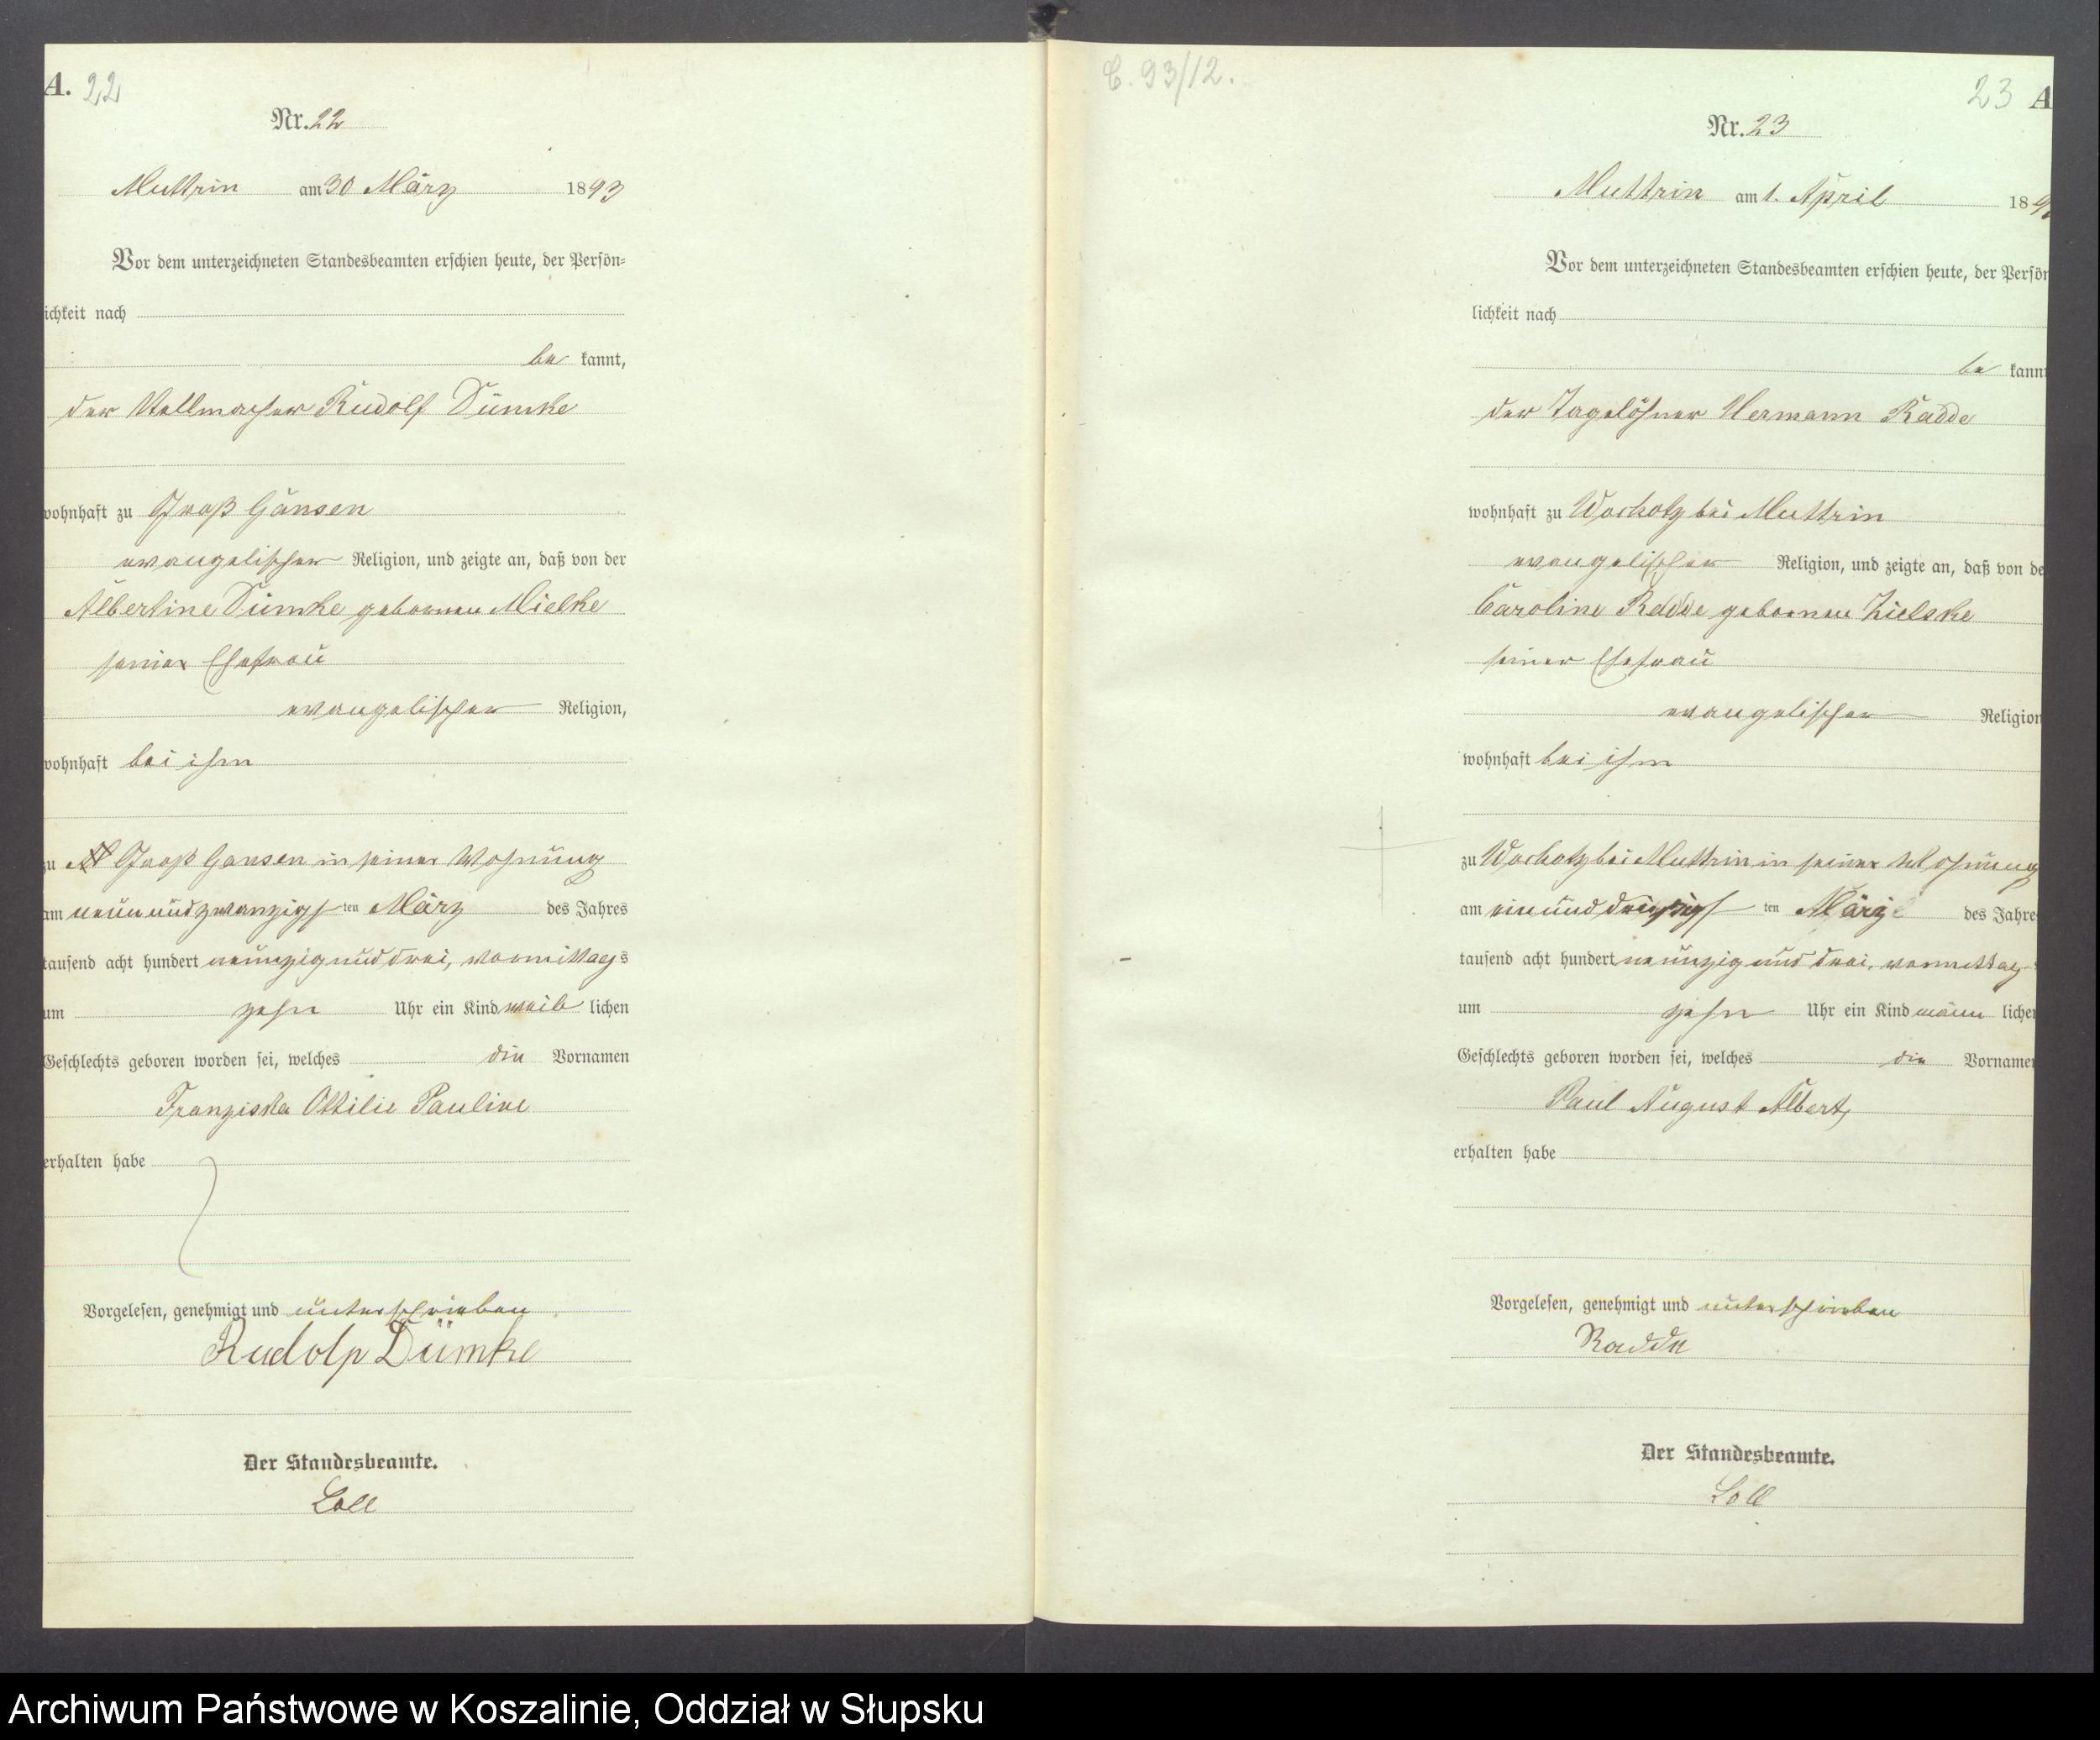 A. 22
Nr. 22
Muttrin am 30 März 1893
Vor dem unterzeichneten Standesbeamten erschien heute, der Persön-
lichkeit nach
be kannt,
der Stellmacher Rudolf Dümke
wohnhaft zu Groß Gansen
evangelischer Religion, und zeigte an, daß von der
Albertine Dümke geborenen Mielke
seiner Ehefrau
evangelischer Religion,
wohnhaft bei ihm
zu Groß Gansen in seiner Wohnung
am neun und zwanzigsten März des Jahres
tausend acht hundert neunzig und drei, vormittags
um zehn Uhr ein Kind weiblichen
Geschlechts geboren worden sei, welches die Vornamen
Franziska Ottilie Pauline
erhalten habe
Vorgelesen, genehmigt und unterschrieben
Rudolp Dümke
Der Standesbeamte.
Loll
C. 93/12.
23 A
Nr. 23
Muttrin am 1. April 189
Vor dem unterzeichneten Standesbeamten erschien heute, der Persön
lichkeit nach
be kannt
der Tagelöhner Hermann Radde
wohnhaft zu Wockotz bei Muttrin
evangelischer Religion, und zeigte an, daß von de
Caroline Radde geborenen Zielske
seiner Ehefrau
evangelischer Religion
wohnhaft bei ihm
zu Wockotz bei Muttrin in seiner Wohnung
am ein und dreißigsten März des Jahre
tausend acht hundert neunzig und drei, vormittag
um zehn Uhr ein Kind männlichen
Geschlechts geboren worden sei, welches die Vornamen
Paul August Albert,
erhalten habe
Vorgelesen, genehmigt und unterschrieben
Radde
Der Standesbeamte.
Loll
Archiwum Państwowe w Koszalinie, Oddział w Słupsku